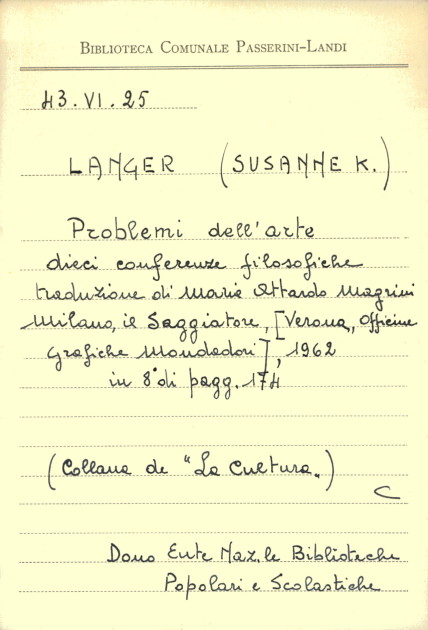 BIBLIOTECA COMUNALE PASSERINI-LANDI
43.VI.25
LANGER (SUSANNE K.)
Problemi dell'arte
dieci conferenze filosofiche
traduzione di Maria Attardo Magrini
Milano, il Saggiatore, [Verona, Officine
grafiche Mondadori], 1962
in 8° di pagg. 174
(Collana de "La Cultura„)
C
Dono Ente Naz.le Biblioteche
Popolari e Scolastiche